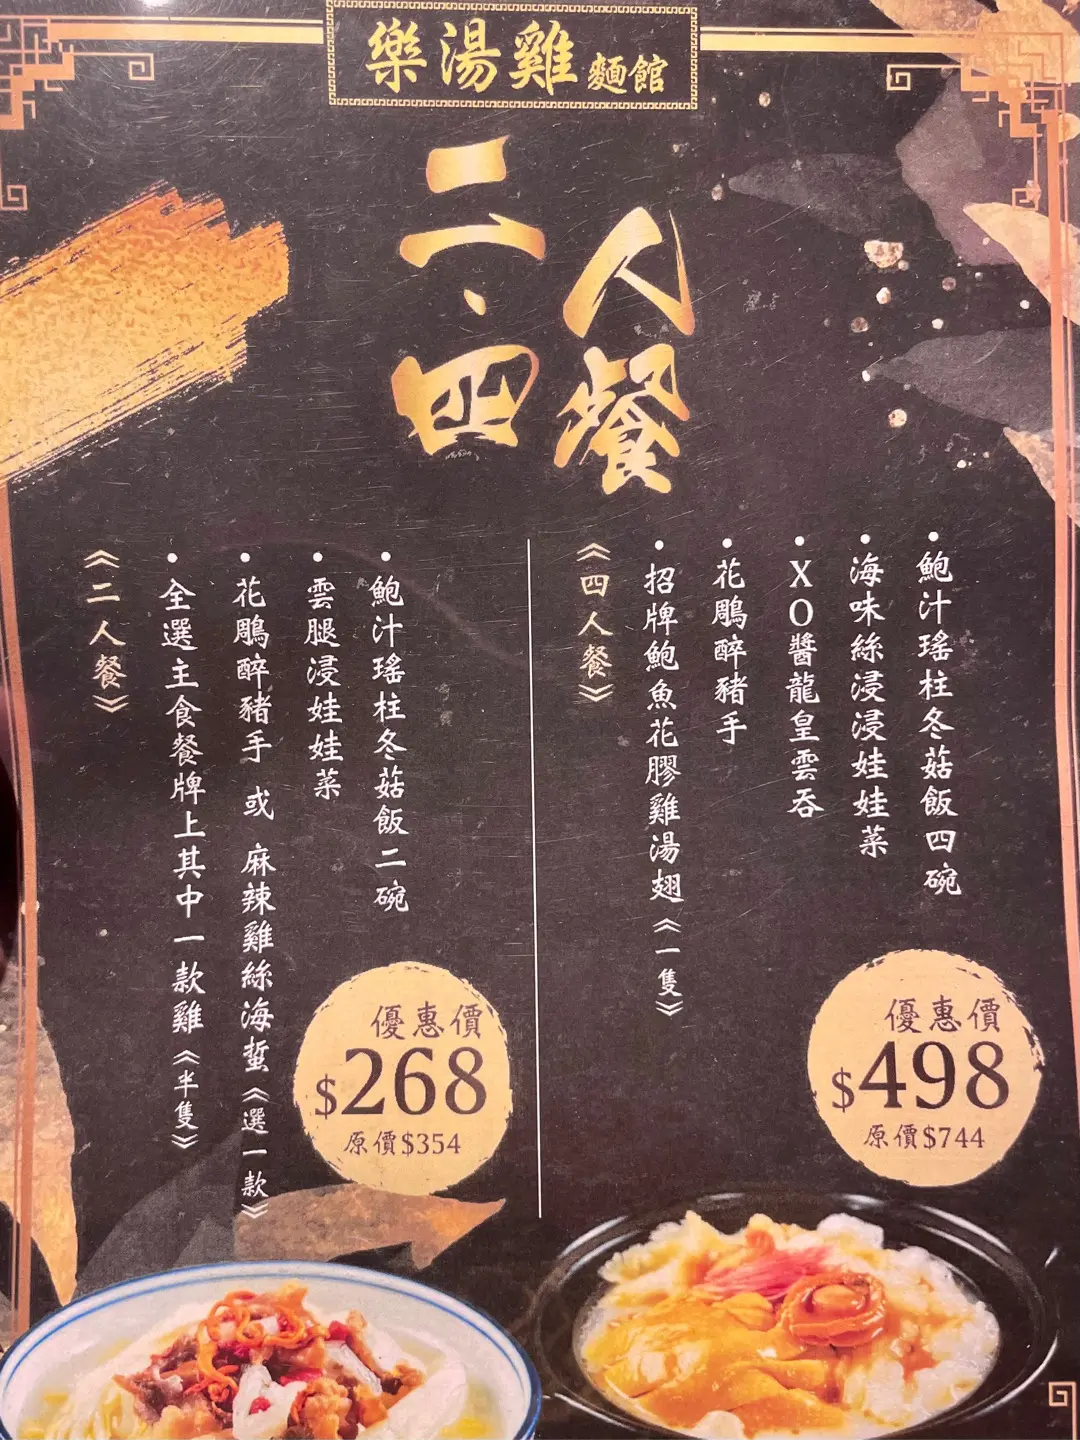 樂湯雞麵館
二·四
人餐
《二人餐》
•全選主食餐牌上其中一款雞《半隻》
•花鵰醉豬手 或 麻辣雞絲海蜇《選一款》
•雲腿浸娃娃菜
•鮑汁瑤柱冬菇飯二碗
優惠價
$268
原價$354
《四人餐》
•招牌鮑魚花膠雞湯翅《一隻》
•花鵰醉豬手
•XO醬龍皇雲吞
•海味絲浸浸娃娃菜
•鮑汁瑤柱冬菇飯四碗
優惠價
$498
原價$744